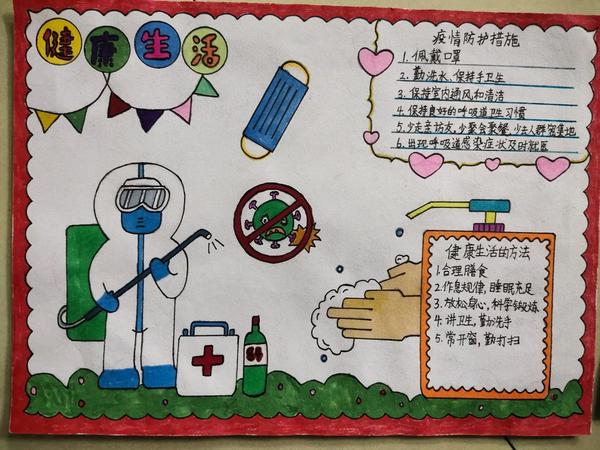 健康生活
疫情防护措施
1. 佩戴口罩
2. 勤洗水、保持手卫生
3. 保持室内通风和清洁
4. 保持良好的呼吸道卫生习惯
5. 少走亲访友,少聚会聚餐,少去人群密集地
6. 出现呼吸道感染症状及时就医
健康生活的方法
1. 合理膳食
2. 作息规律,睡眠充足
3. 放松身心,科学锻炼
4. 讲卫生,勤洗手
5. 常开窗,勤打扫
84